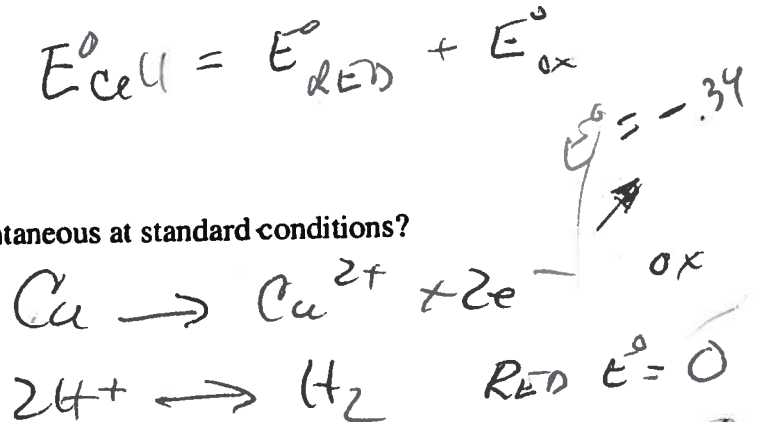 E°cell = E°RED + E°ox
E° = -.34
ntaneous at standard conditions?
Cu → Cu²⁺ + 2e⁻ ox
2H⁺ → H₂ RED E° = 0